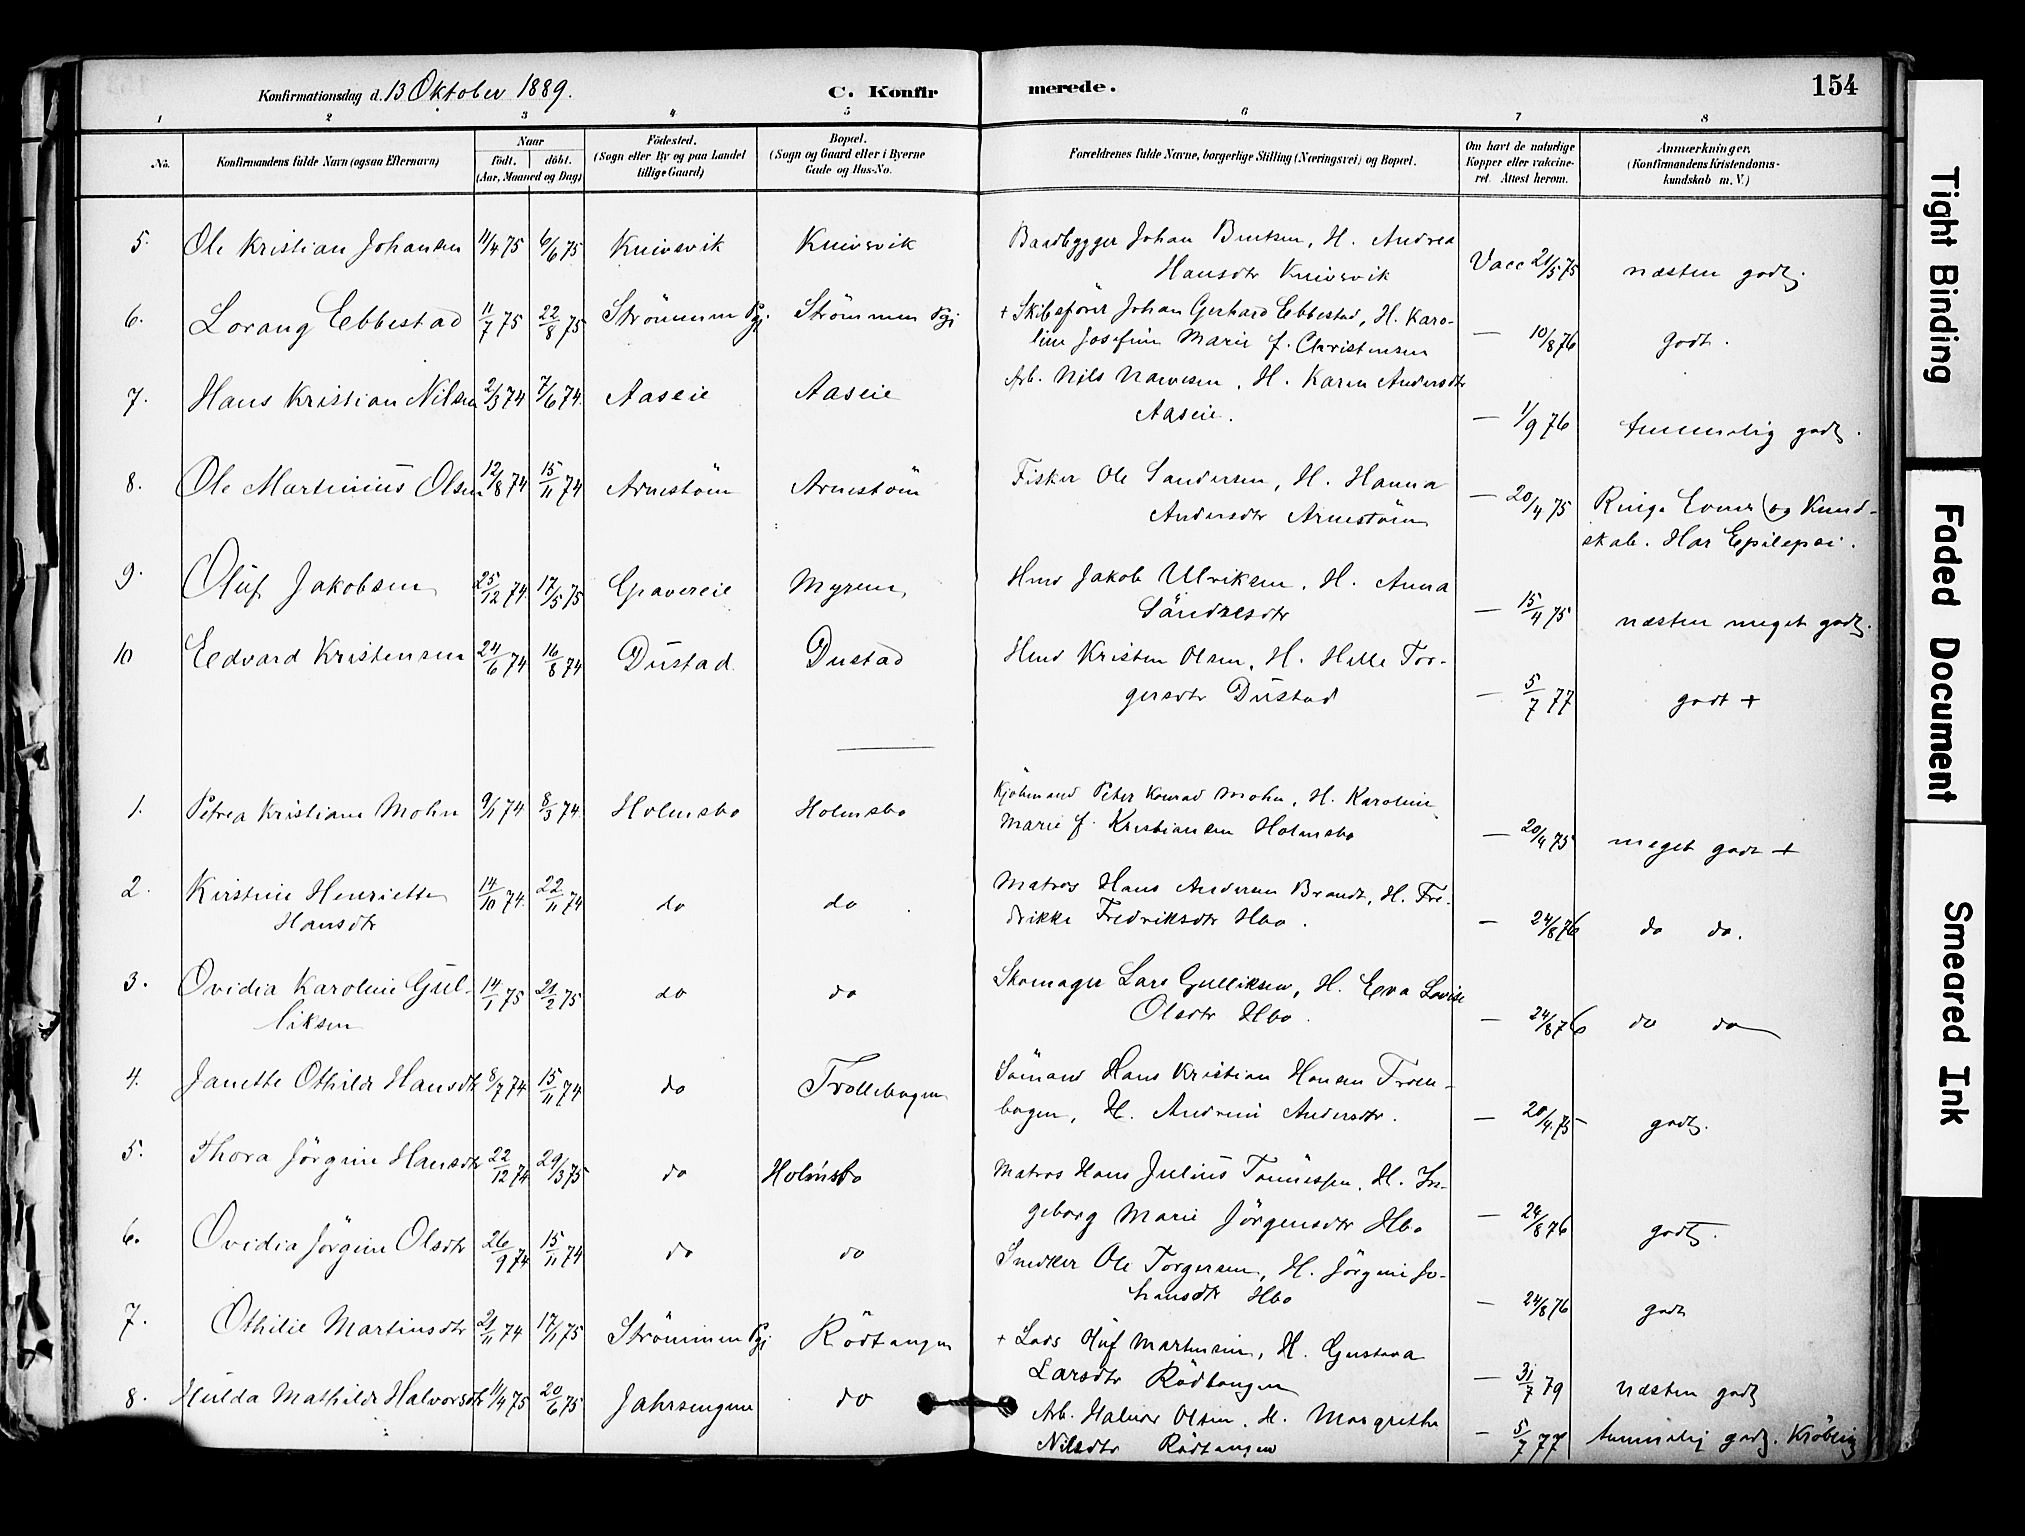 Konfirmationsdag d. 13 Oktober 1889.
C. Konfirmerede.
154
1 2 3 4 5 6 7 8
No.
Konfirmandens fulde Navn (ogsaa Efternavn)
Naar
födt. döbt.
(Aar, Maaned og Dag)
Födested.
(Sogn eller By og paa Landet
tillige Gaard)
Bopæl.
(Sogn og Gaard eller i Byerne
Gade og Hus-No.
Forældrenes fulde Navne, borgerlige Stilling (Næringsvei) og Bopæl.
Om havt de naturlige
Kopper eller vakcine-
ret. Attest herom.
Anmærkninger.
(Konfirmandens Kristendoms-
kundskab m. V.)
5. Ole Kristian Johansen 11/4 75 6/6 75 Knivsvik Knivsvik Johan H. Andrea
Hansdtr Knivsvik Vacc 21/5 75 næsten godt.
6. Lorang Ebbestad 11/7 75 22/8 75 Strömmen Pgj. Strömmen Pgj + Skibsförer Johan Gerhard Ebbestad, H. Karo-
line Josefine Marie f. Christensen — 10/8 76 godt.
7. Hans Kristian Nilsen 2/3 74 7/6 74. Aaseie Aaseie Arb. Nils H. Karen Andersdtr
Aaseie. — 1/9 76 temmelig godt.
8. Ole Martinius Olsen 12/8 74 15/11 74 Arnestöm Arnestöm Fisker Ole Sandersen, H. Hanna
Andersdtr Arnestöm — 20/4 75 Ringe Evner og Kund-
skab. Har Epilepsi.
9. Oluf Jakobsen 25/12 74. 17/5 75 Gravereie Myren Hmd Jakob Ulriksen. H. Anna
Söndresdtr — 15/4 75 næsten meget godt.
10 Eedvard Kristensen 24/6 74 16/8 74 Dustad. Dustad Hmd Kristen Olsen, H. Helle Tor-
gersdtr Dustad — 5/7 77 godt +
1. Petrea Kristiane Mohn 9/1 74 8/3 74. Holmsbo Holmsbo Kjöbmand Peter Konrad Mohn, H. Karoline
Marie f. Kristiansen Holmsbo — 20/4 75 meget godt +
2. Kirstine Henriette
Hansdtr 14/10 74. 22/11 74 do do Matros Hans Andersen Brandt, H. Fre-
drikke Fredriksdtr Hbo. — 24/8 76 do do.
3. Ovidia Karoline Gul-
liksen 14/1 75 21/2 75 do do Skomager Lars Gulliksen, H. Eva Lovise
Olsdtr Hbo. — 24/8 76 do do
4. Janette Othilde Hansdtr 8/7 74 15/11 74 do Trollebogen Sömand Hans Kristian Hansen Trolle-
bogen, H. Andrine Andersdtr. — 20/4 75 godt.
5. Thora Jörgine Hansdtr 22/12 74 29/3 75 do Holmsbo Matros Hans Julius Tönnessen. H. In-
geborg Marie Jörgensdtr Hbo — 24/8 76 godt.
6. Ovidia Jörgine Olsdtr 26/9 74 15/11 74 do do Snedker Ole Torgersen, H. Jörgine Jo-
hansdtr Hbo — 24/8 76 godt
7. Othilie Martinsdtr 21/11 74 17/1 75 Strömmen Pgj Rödtangen + Lods Martinsen, H. Gustava
Larsdtr Rödtangen — 31/7 79 næsten godt
8. Hulda Mathilde Halvorsdtr 11/4 75 20/6 75 Jahrsengene do Arb. Halvor Olsen. H. Margrethe
Nilsdtr Rödtangen — 5/7 77 temmelig godt. Kröbling
Tight Binding
Faded Document
Smeared Ink